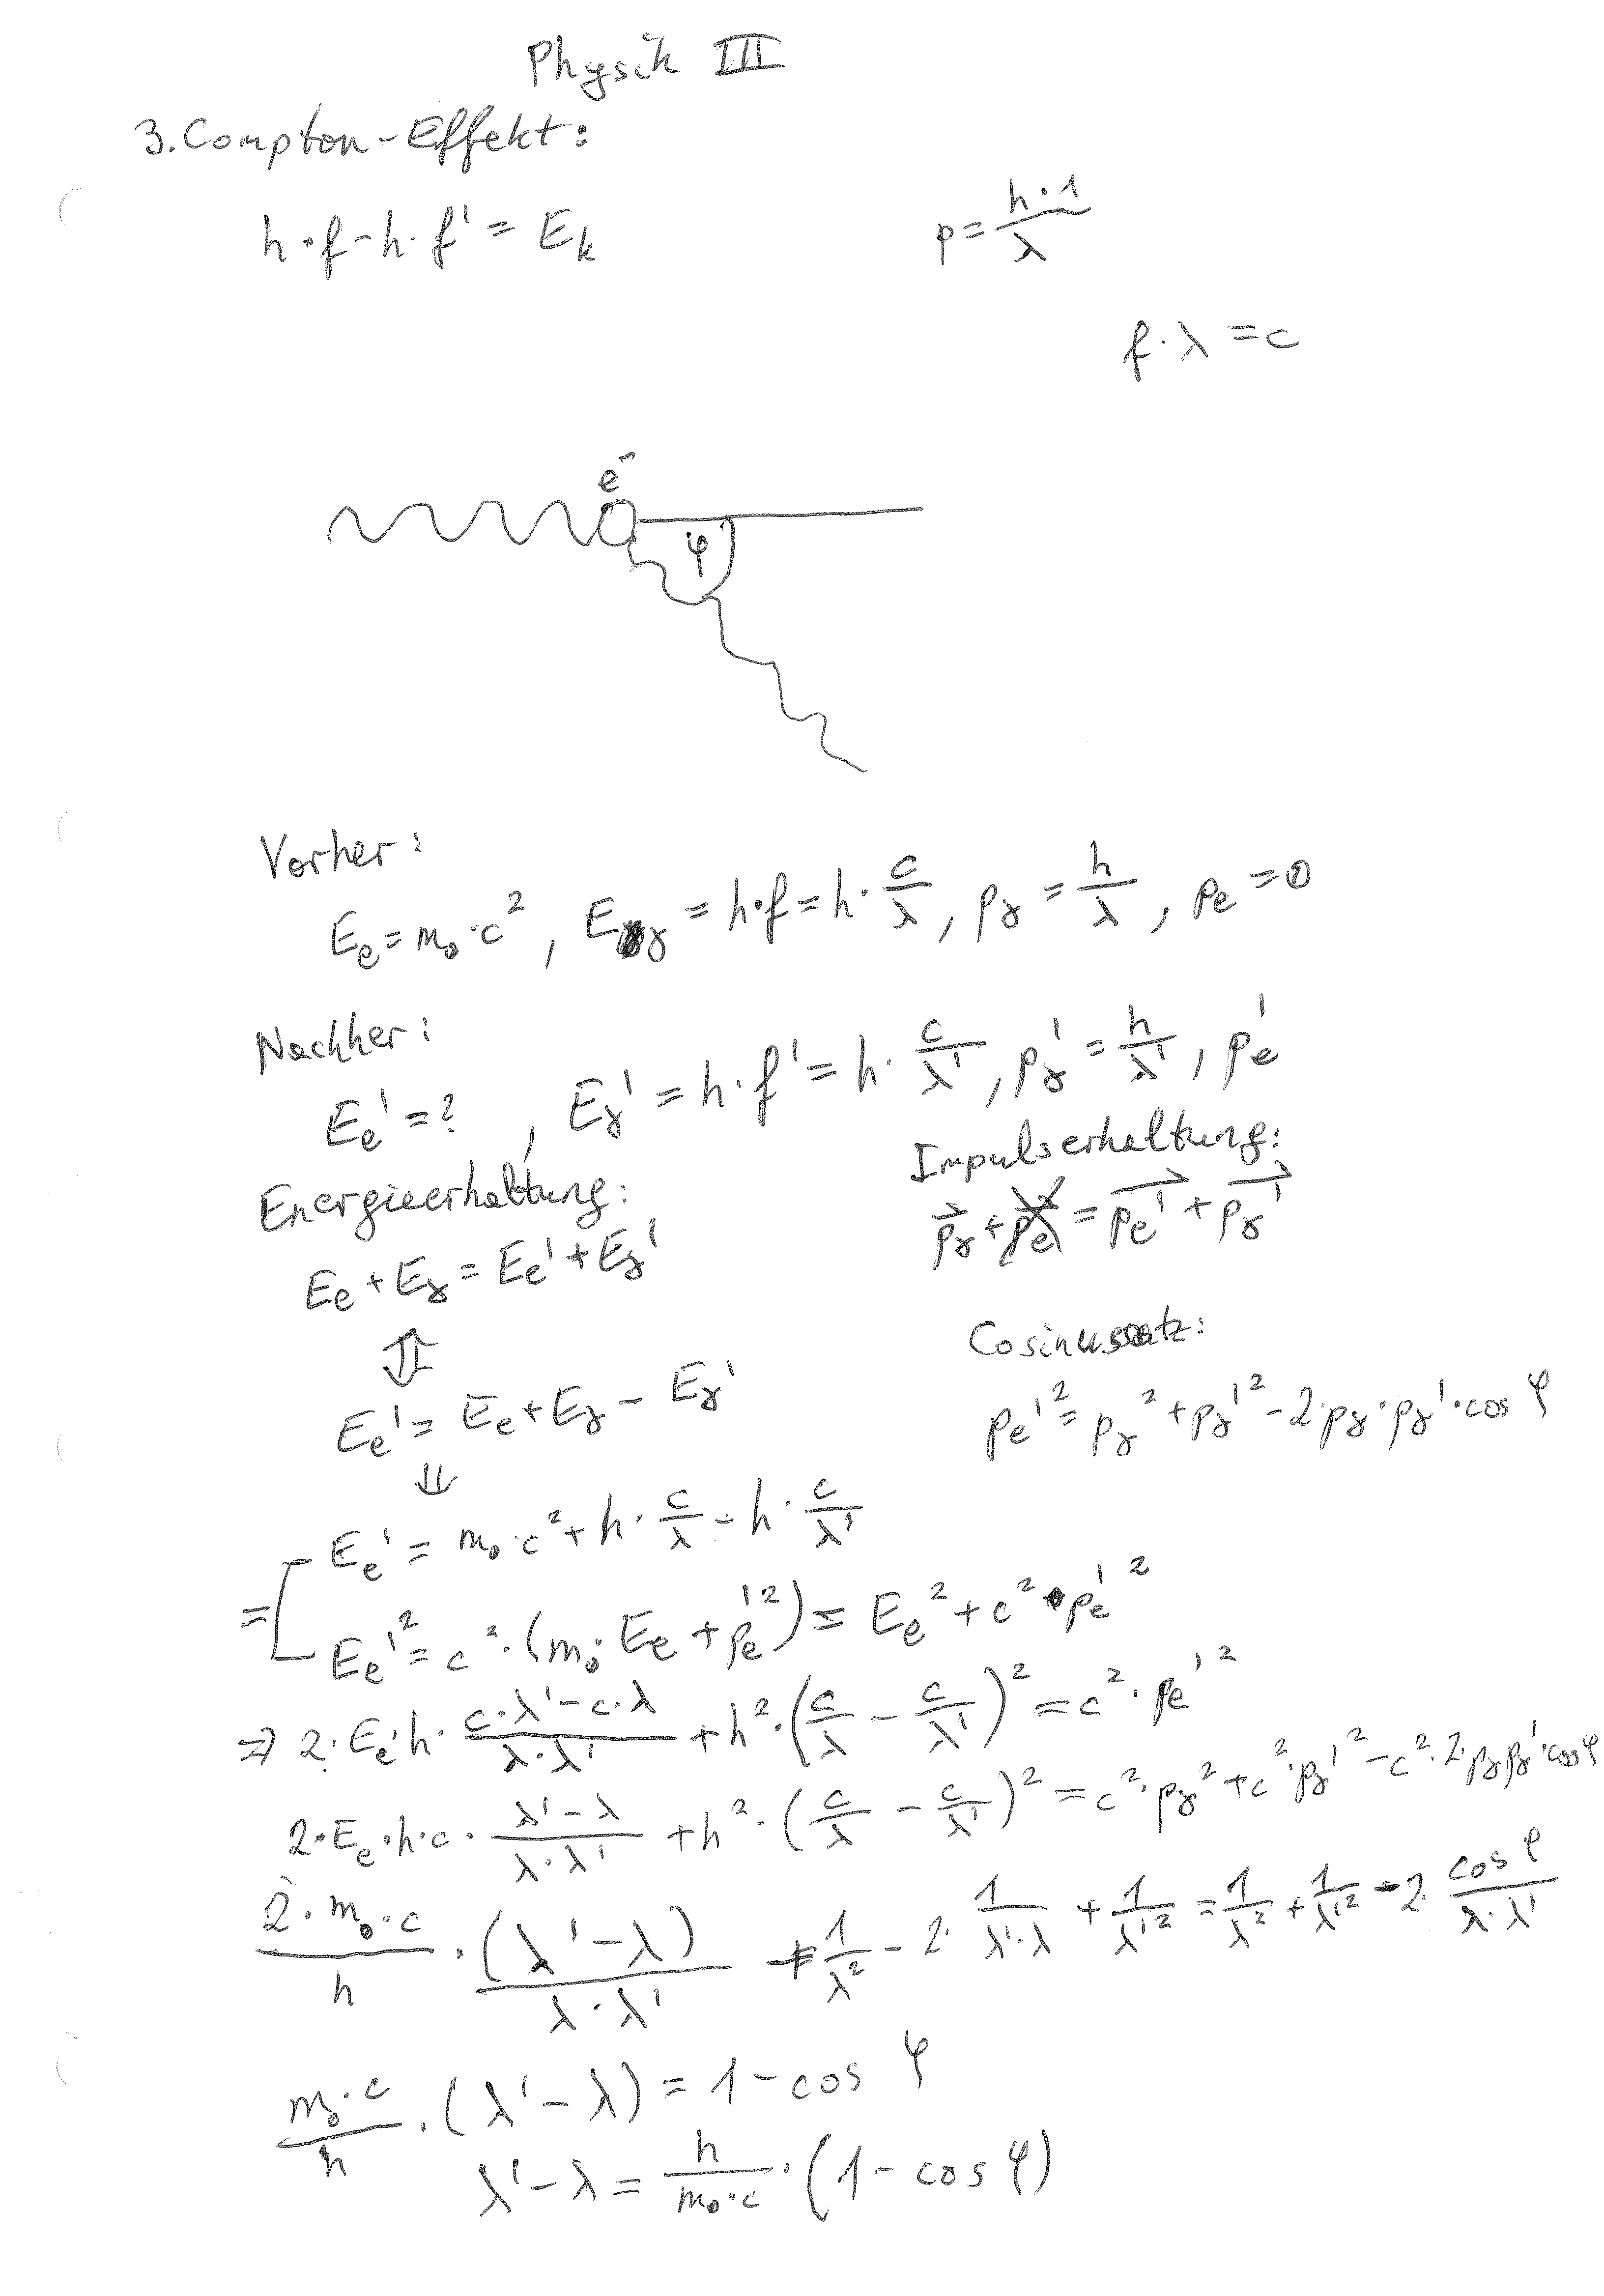 Physik III
3. Compton-Effekt:
h·f-h·f' = E_k
p = (h·1)/λ
f·λ = c
e⁻
φ
Vorher:
E_e = m₀·c², E_γ = h·f = h·c/λ, p_γ = h/λ, p_e = 0
Nachher:
E_e' = ?, E_γ' = h·f' = h·c/λ', p_γ' = h/λ', p_e'
Energieerhaltung:
E_e + E_γ = E_e' + E_γ'
⇕
E_e' = E_e + E_γ - E_γ'
⇓
Impulserhaltung:
p_γ⃗ + p_e⃗ = p_e'⃗ + p_γ'⃗
Cosinussatz:
p_e'² = p_γ² + p_γ'² - 2·p_γ·p_γ'·cos φ
E_e' = m₀·c² + h·c/λ - h·c/λ'
= E_e'² = c²·(m₀·E_e + p_e'²) = E_e² + c²·p_e'²
⇒ 2·E_e·h·(c·λ'-c·λ)/(λ·λ') + h²·(c/λ - c/λ')² = c²·p_e'²
2·E_e·h·c·(λ'-λ)/(λ·λ') + h²·(c/λ - c/λ')² = c²·p_γ² + c²·p_γ'² - c²·2·p_γ p_γ'·cos φ
(2·m₀·c)/h · (λ'-λ)/(λ·λ') + 1/λ² - 2·1/(λ'·λ) + 1/λ'² = 1/λ² + 1/λ'² - 2·cos φ/(λ·λ')
(m₀·c)/h · (λ'-λ) = 1-cos φ
λ'-λ = h/(m₀·c) · (1-cos φ)